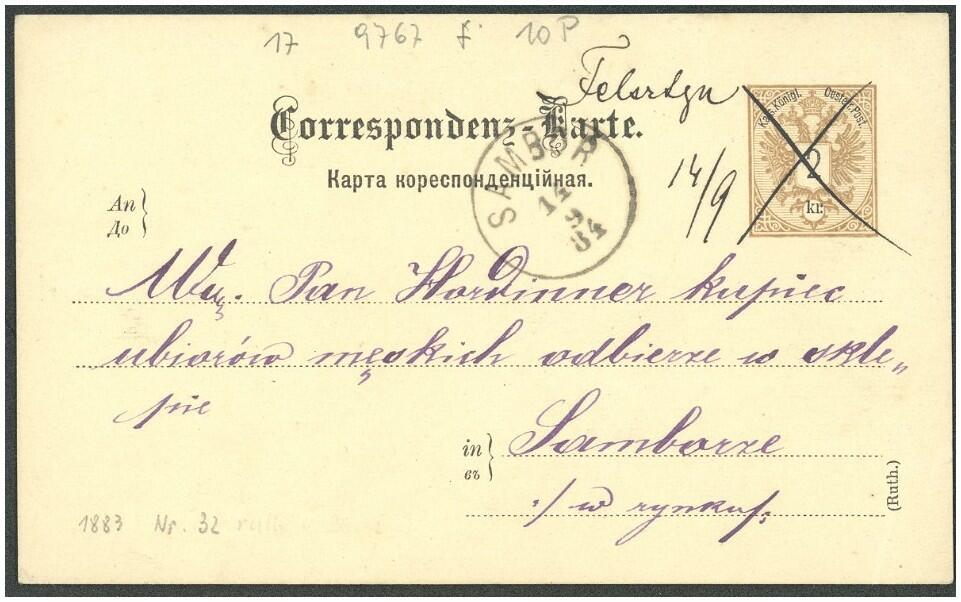 17 9767 f. 10P
Felsztyn
Kais. Königl. Oesterr. Post.
Correspondenz-Karte.
2
SAMBOR
14/9
Карта кореспонденційная.
14
9
84
kr.
An
До
Pan Hordinner kupiec
ubiorów męskich odbierze w skle„
pie
in
въ
Samborze
:/ w rynku/:
(Ruth.)
1883 Nr. 32